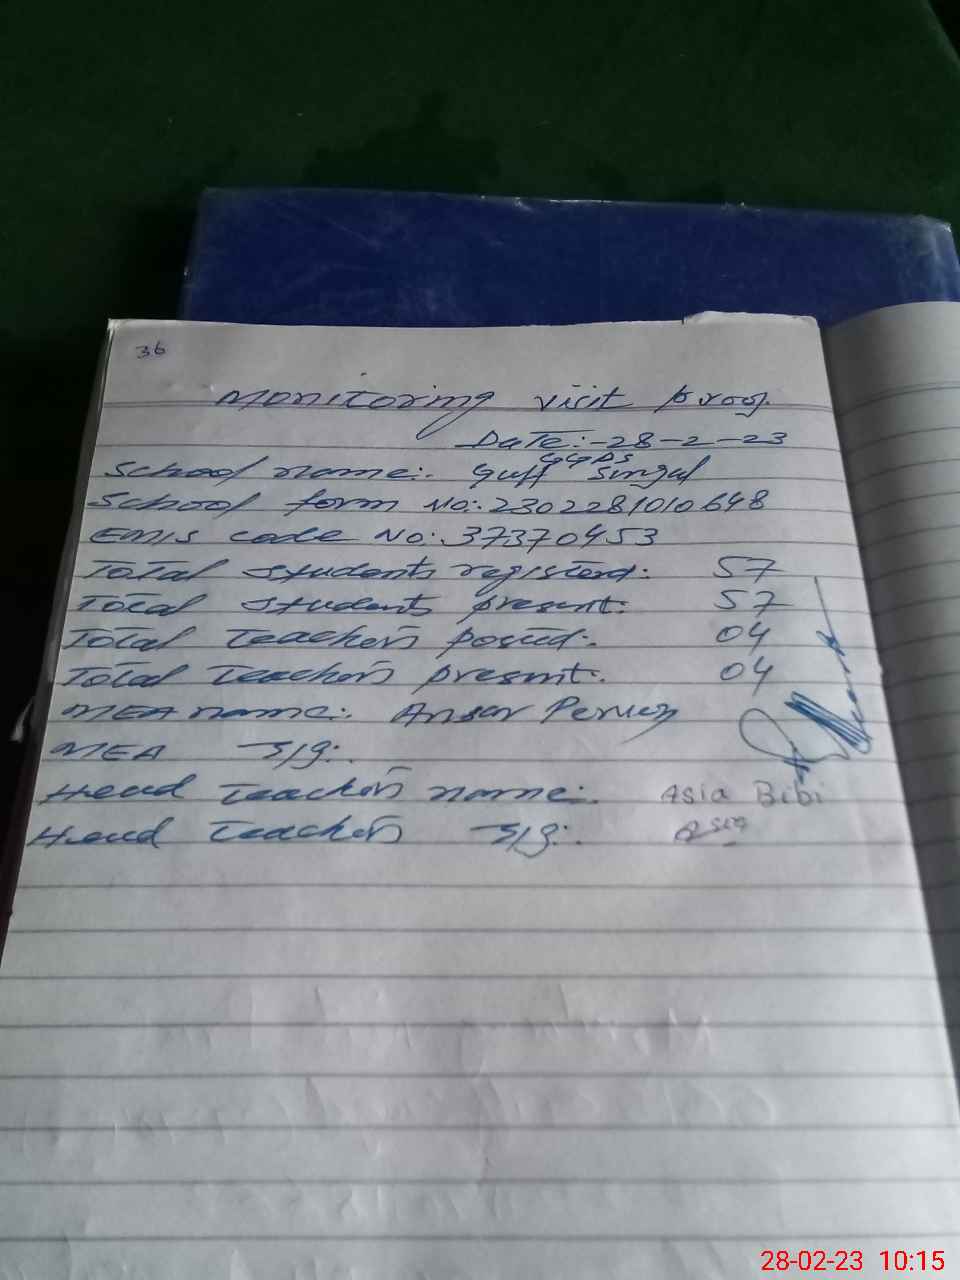 36
Monitoring visit proof.
Date:-28-2-23
GGPS
School name:. Guff Singal
School form No:.2302281010648
EMIS code No:.37370453
Total students registered:. 57
Total students present:. 57
Total teachers posted:. 04
Total teachers present:. 04
MEA name:. Ansar Pervez
MEA Sig:.
Head teacher name:. Asia Bibi
Head teacher Sig:. Asia
28-02-23 10:15